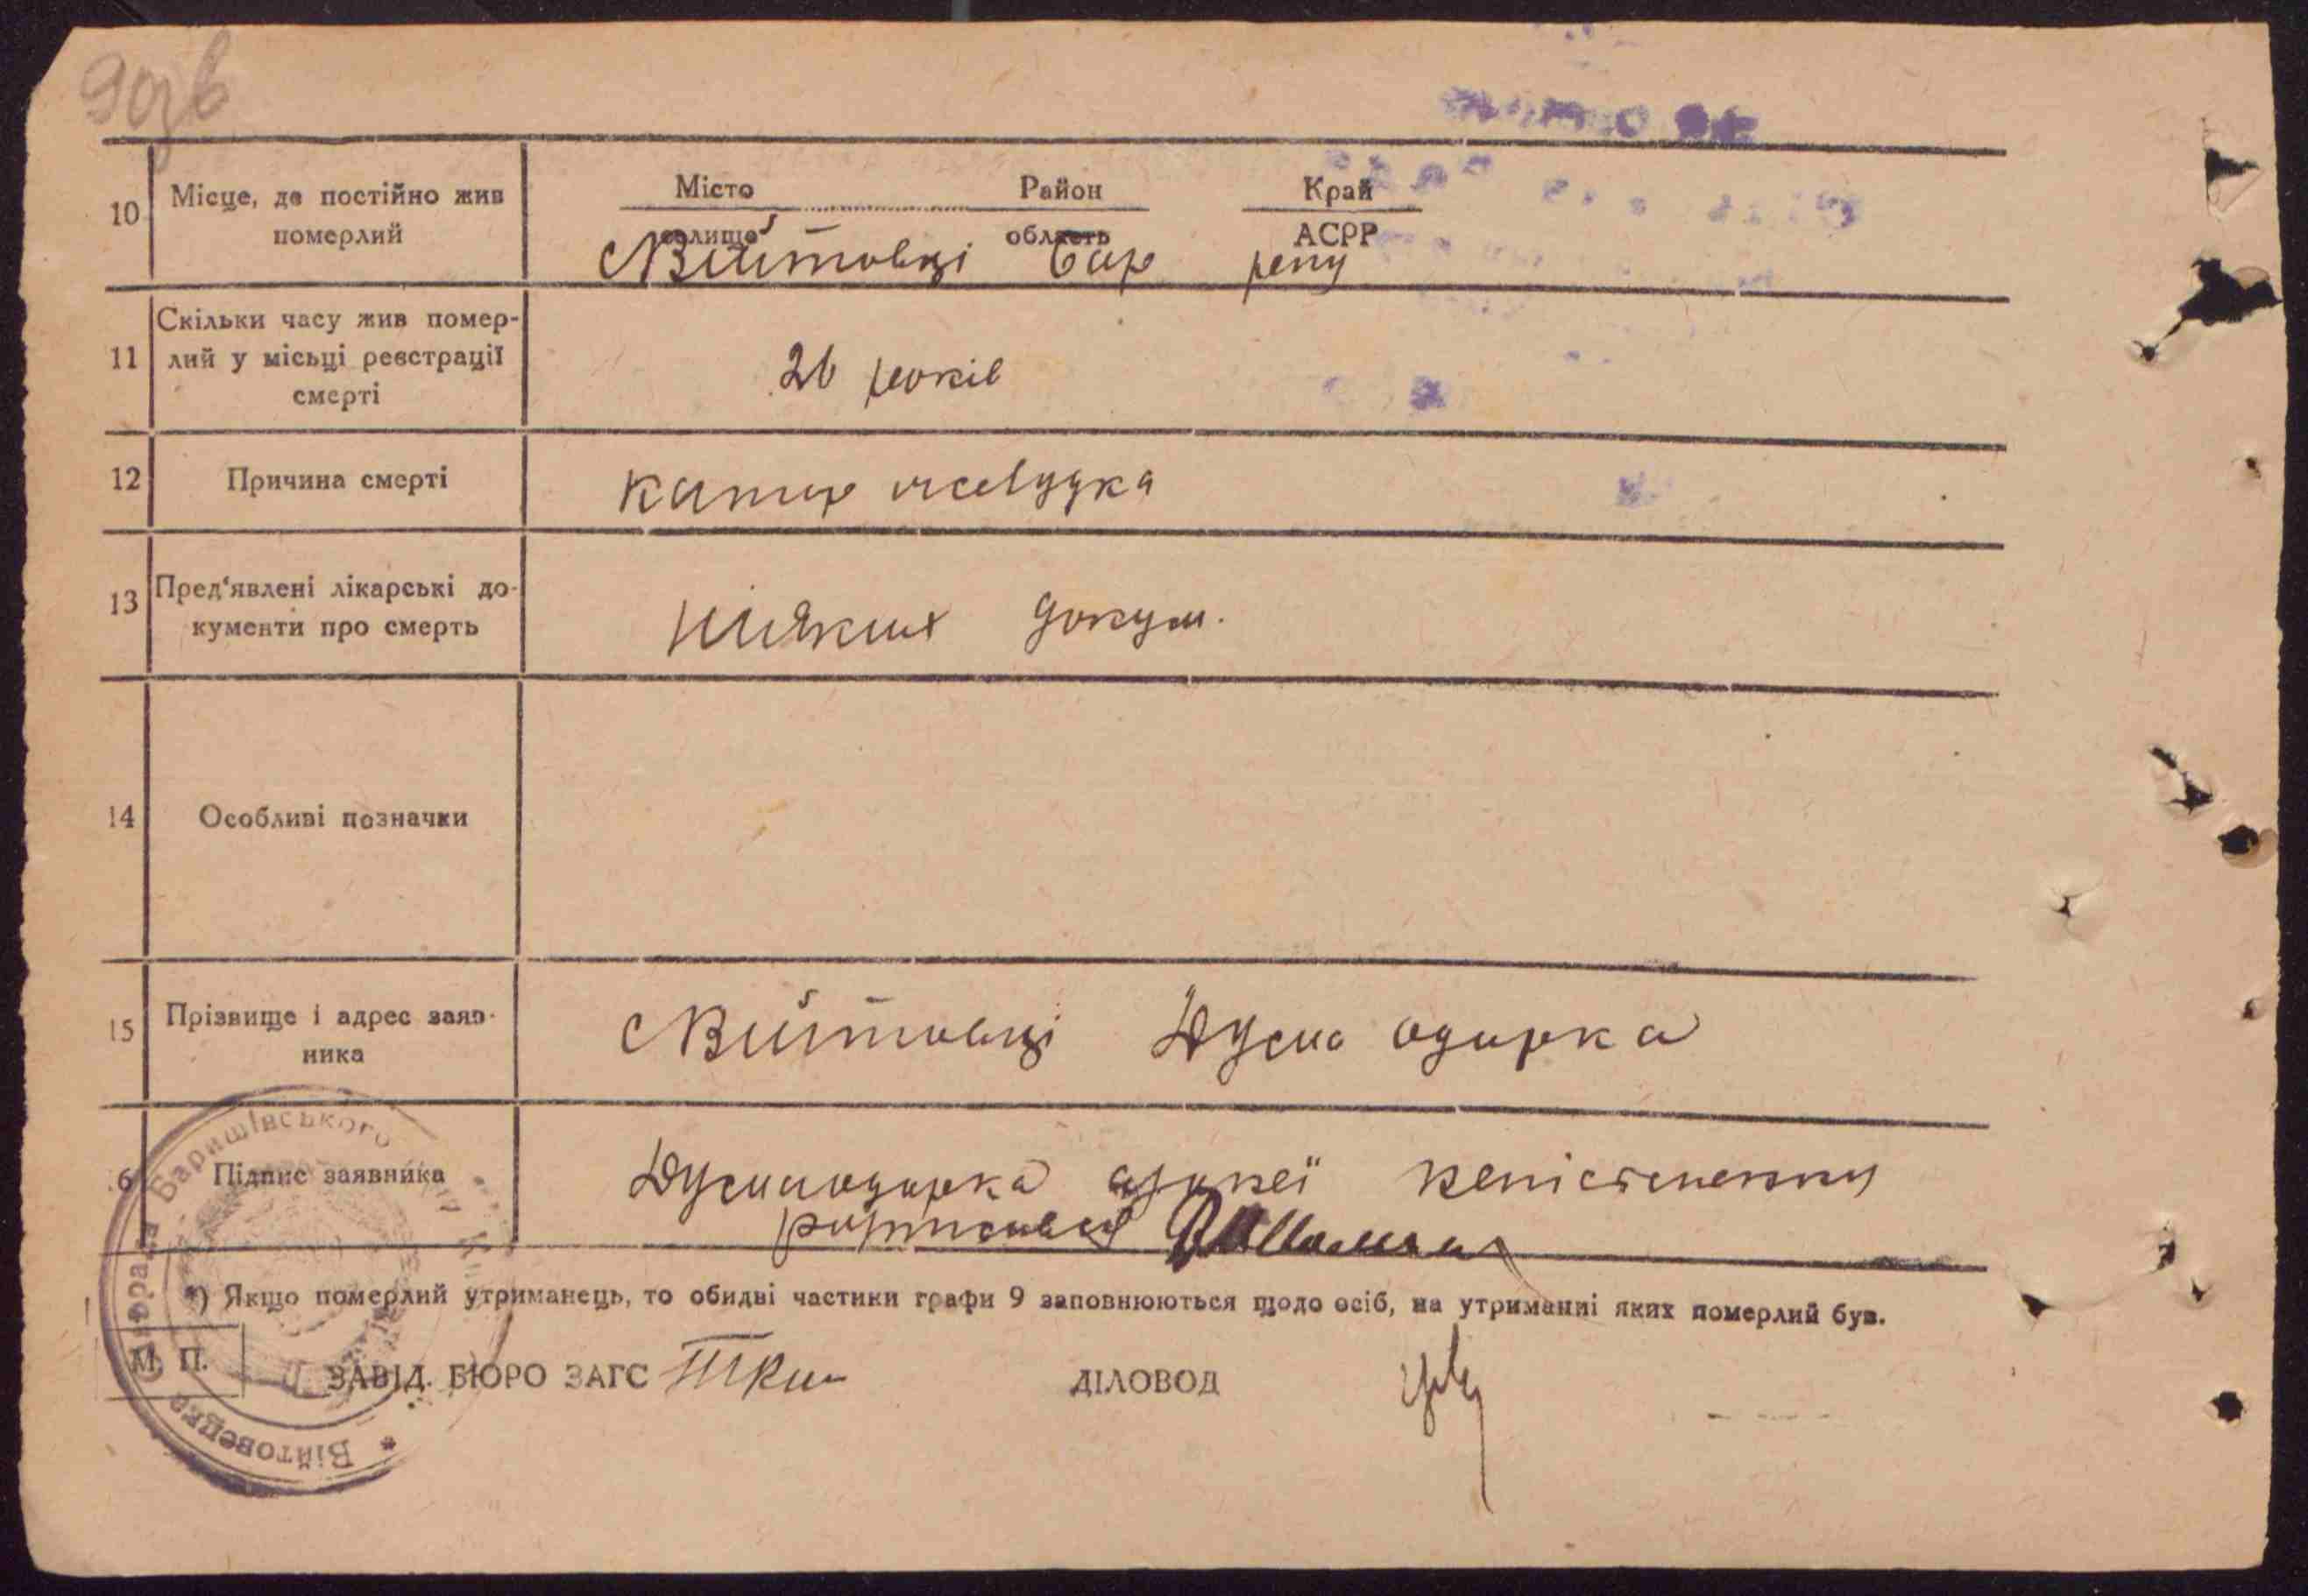 90зв
10 Місце, де постійно жив
померлий
Місто Район Край
селище область АСРР
с Війтовці Бар
11 Скільки часу жив помер-
лий у місьці реєстрації
смерті
26 років
12 Причина смерті
Катар желудка
13 Пред'явлені лікарські до-
кументи про смерть
ніяких докум.
14 Особливі позначки
15 Прізвище і адрес заяв-
ника
с Війтовці Одарка
Підпис заявника
Одарка
росписався
*) Якщо померлий утриманець, то обидві частини графи 9 заповнюються щодо осіб, на утриманні яких померлий був.
М. П.
ЗАВІД. БЮРО ЗАГС
ДІЛОВОД
Війтовецька Баришівського